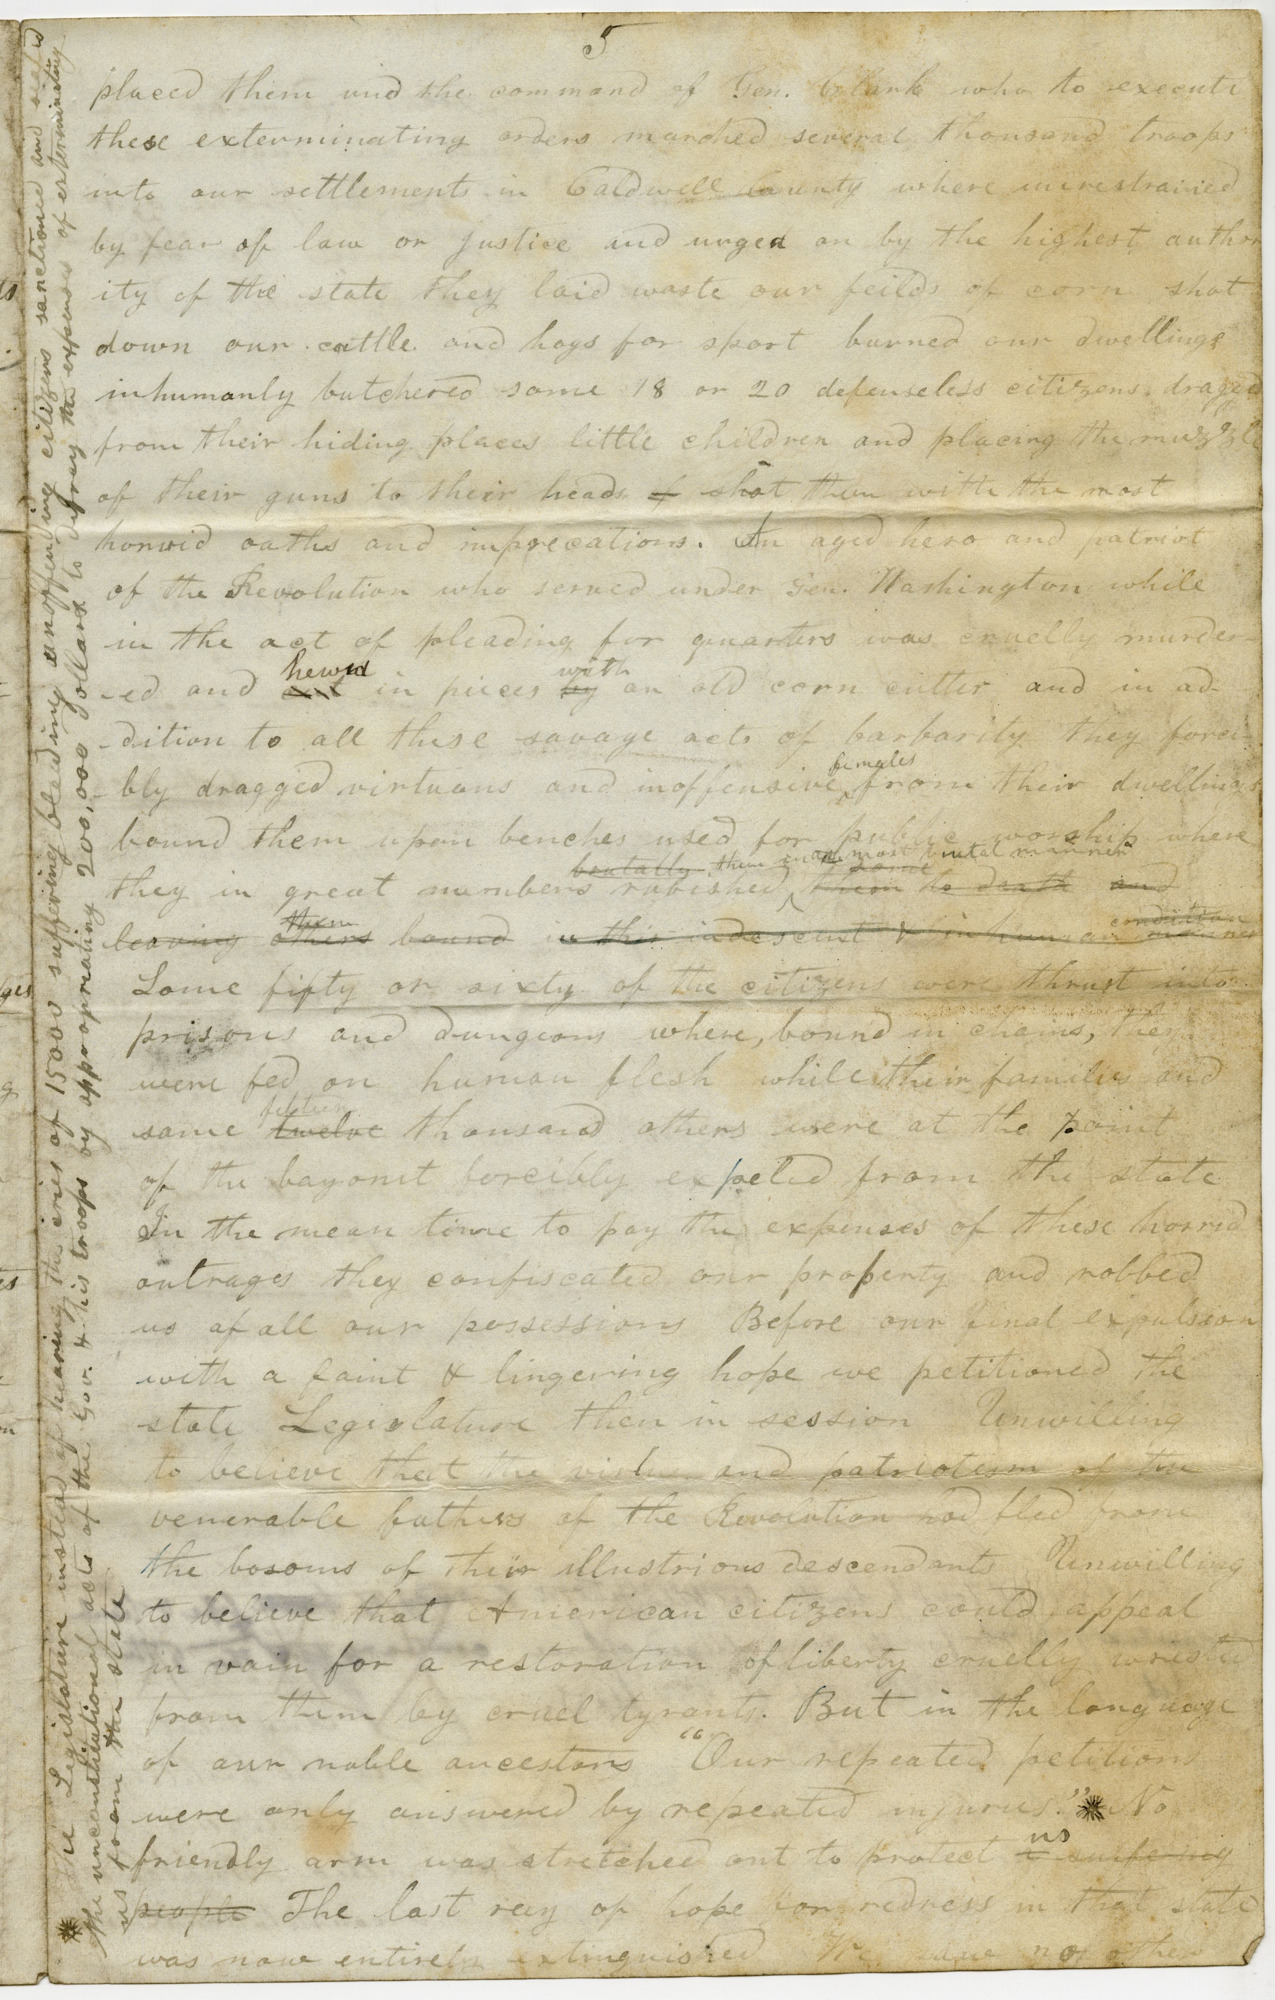 5
placed them und the command of Gen. Clark who to execute
these exterminating orders marched several thousand troops
into our settlements in Caldwell County where unrestrained
by fear of law or justice and urged on by the highest author
ity of the state they laid waste our feilds of corn shot
down our cattle and hogs for sport burned our dwellings
inhumanly butchered some 18 or 20 defenseless citizens draged
from their hiding places little children and placing the muzzle
of their guns to their heads & shot them with the most
horrid oaths and imprecations. An aged hero and patriot
of the Revolution who served under Gen. Washington while
in the act of pleading for quarters was cruelly murder-
-ed and cut hewed in pieces by with an old corn cutter and in ad-
-dition to all these savage acts of barbarity they forci-
-bly dragged virtuous and inoffensive females from their dwellings
bound them upon benches used for public worship where
brutally them in the most brutal manner
they in great numbers ravished some them to death and
leaving others them bound in this indescent & inhuman manner condition
Some fifty or sixty of the citizens were thrust into
prisons and dungeons where, bound in chains, they
were fed on human flesh while their families and
some twelve fifteen thousand others were at the point
of the bayonet forcibly expeled from the state
In the mean time to pay the expenses of these horrid
outrages they confiscated our property and robbed
us of all our possessions Before our final expulsion
with a faint & lingering hope we petitioned the
state Legislature then in session Unwilling
to believe that the virtue and patriotism of the
venerable fathers of the Revolution had fled from
the bosoms of their illustrious descendants Unwilling
to believe that American citizens could appeal
in vain for a restoration of liberty cruelly wrested
from them by cruel tyrants. But in the language
of our noble ancestors "Our repeated petitions
were only answered by repeated injuries." * No
friendly arm was stretched out to protect us a suffering
people The last ray of hope for redress in that state
was now entirely extinguished We saw no other
* The Legislature instead of hearing the cries of 15000 suffering bleeding unoffending citizens sanctioned and
the unconstitutional acts of the Gov. & his troops by appropriating 200,000 dollars to defray the expenses of exterminating
us from the state